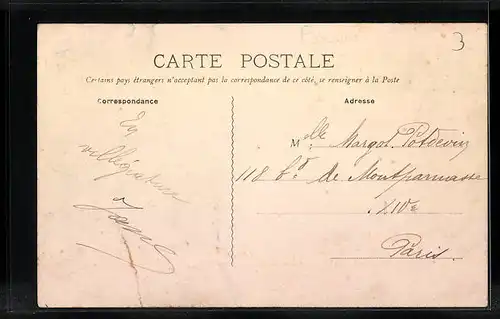 3
CARTE POSTALE
Certains pays étrangers n'acceptant pas la correspondance de ce côté, se renseigner à la Poste
Correspondance
Adresse
En
villégiature
Mdlle Margot Potdevin
118 Bd de Montparnasse
XIVe
Paris.